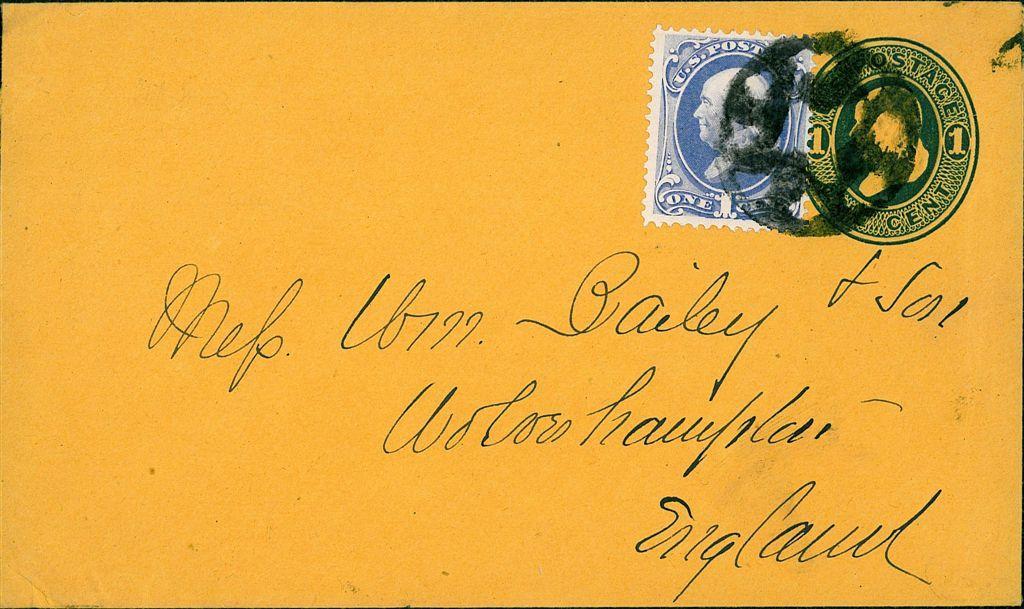 U.S. POST
ONE
POSTAGE
1 1
CENT
Mess. Wm. Bailey & Son
Wolverhampton
England